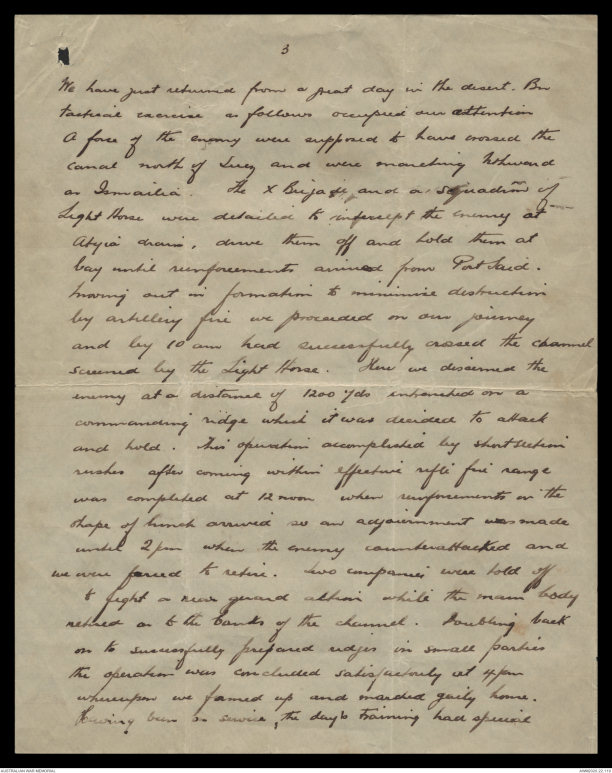 3
We have just returned from a great day in the desert. Bn
tactical exercise as follows occupied our attention
A force of the enemy were supposed to have crossed the
canal north of Suez and were marching Nthward
on Ismailia. The X Brigade and a squadron of
Light Horse were detailed to intercept the enemy at
drain, drive them off and hold them at
bay until reinforcements arrived from Port Said.
Moving out in formation to minimise destruction
by artillery fire we proceeded on our journey
and by 10 am had successfully crossed the channel
screened by the Light Horse. Here we discerned the
enemy at a distance of 1200 yds entrenched on a
commanding ridge which it was decided to attack
and hold. This operation accomplished by short section
rushes after coming within effective rifle fire range
was completed at 12 noon when reinforcements in the
shape of lunch arrived so an adjournment was made
until 2 pm when the enemy counterattacked and
we were forced to retire. Two companies were told off
to fight a rear guard action while the main body
retired on to the banks of the channel. Doubling back
on to successfully prepared ridges in small parties
the operation was concluded satisfactorily at 4 pm
whereupon we formed up and marched gaily home.
Having been on service, the day's training had special
AUSTRALIAN WAR MEMORIAL